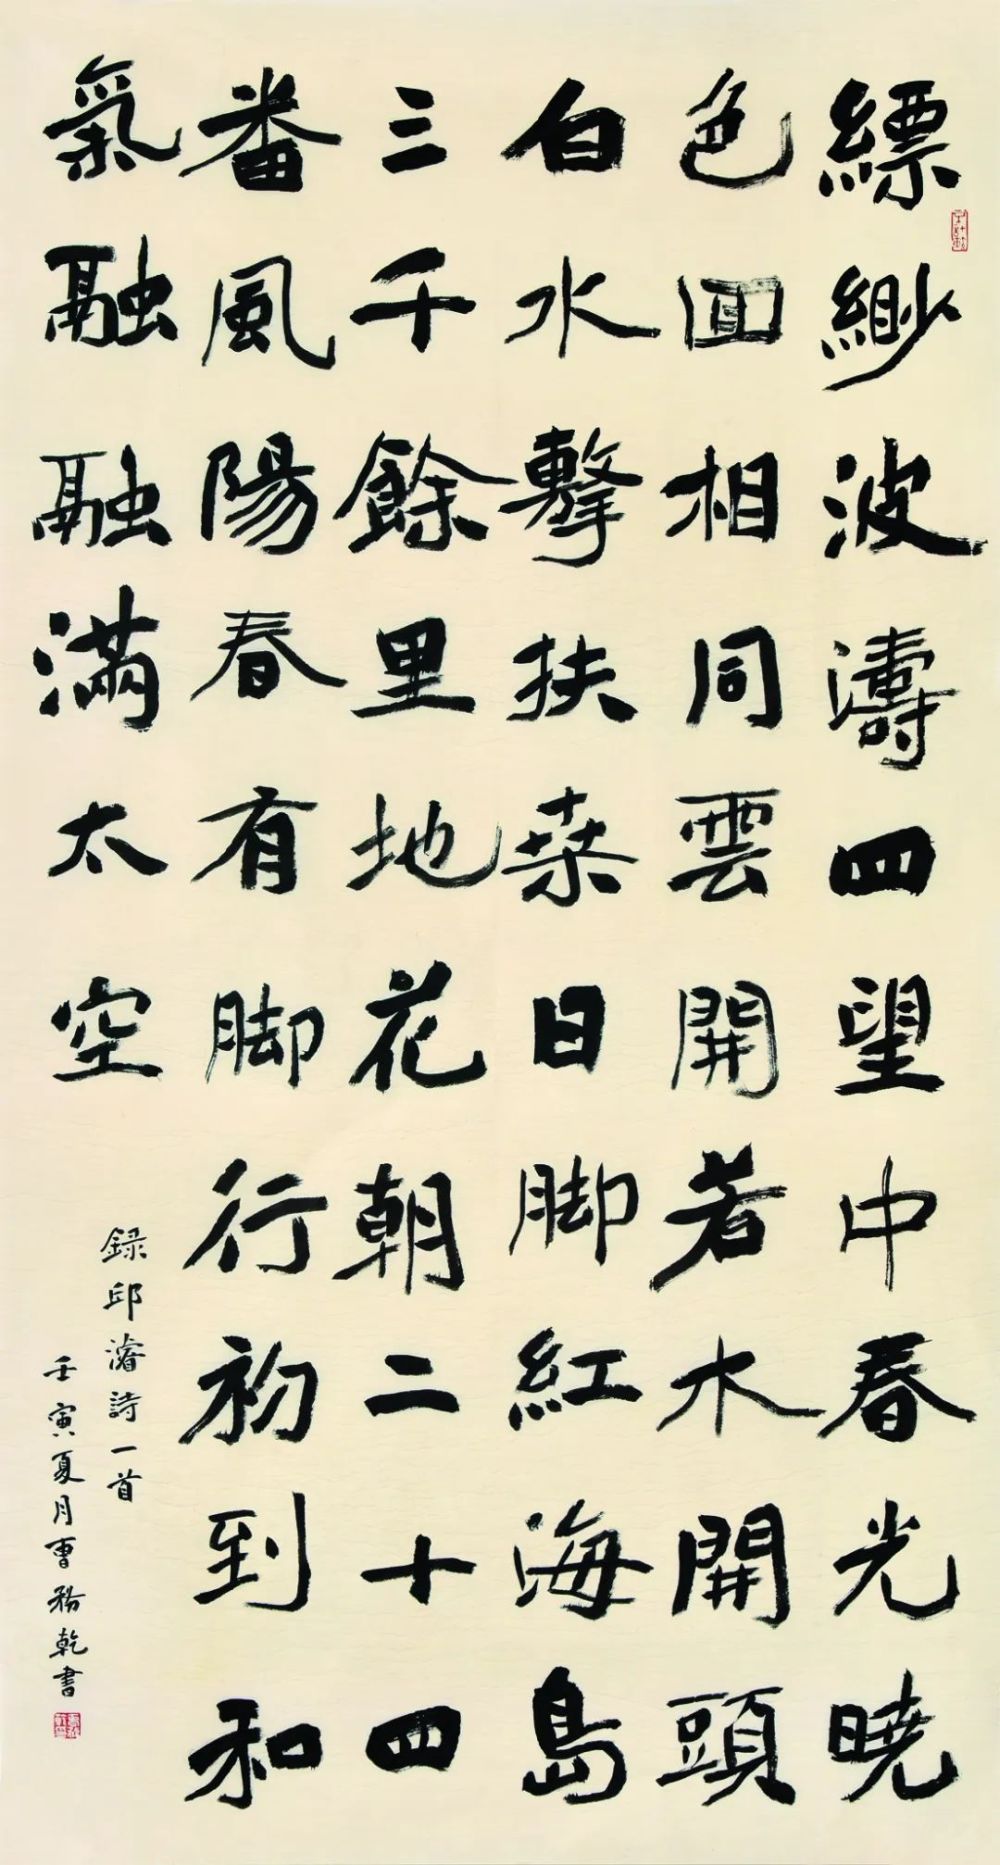 縹緲波濤四望中春光曉
色囬相同雲開若木開頭
白水擊扶桒日脚紅海島
三千餘里地花朝二十四
番風陽春有脚行初到和
氣融融滿太空
録邱濬詩一首
壬寅夏月曹務乾書